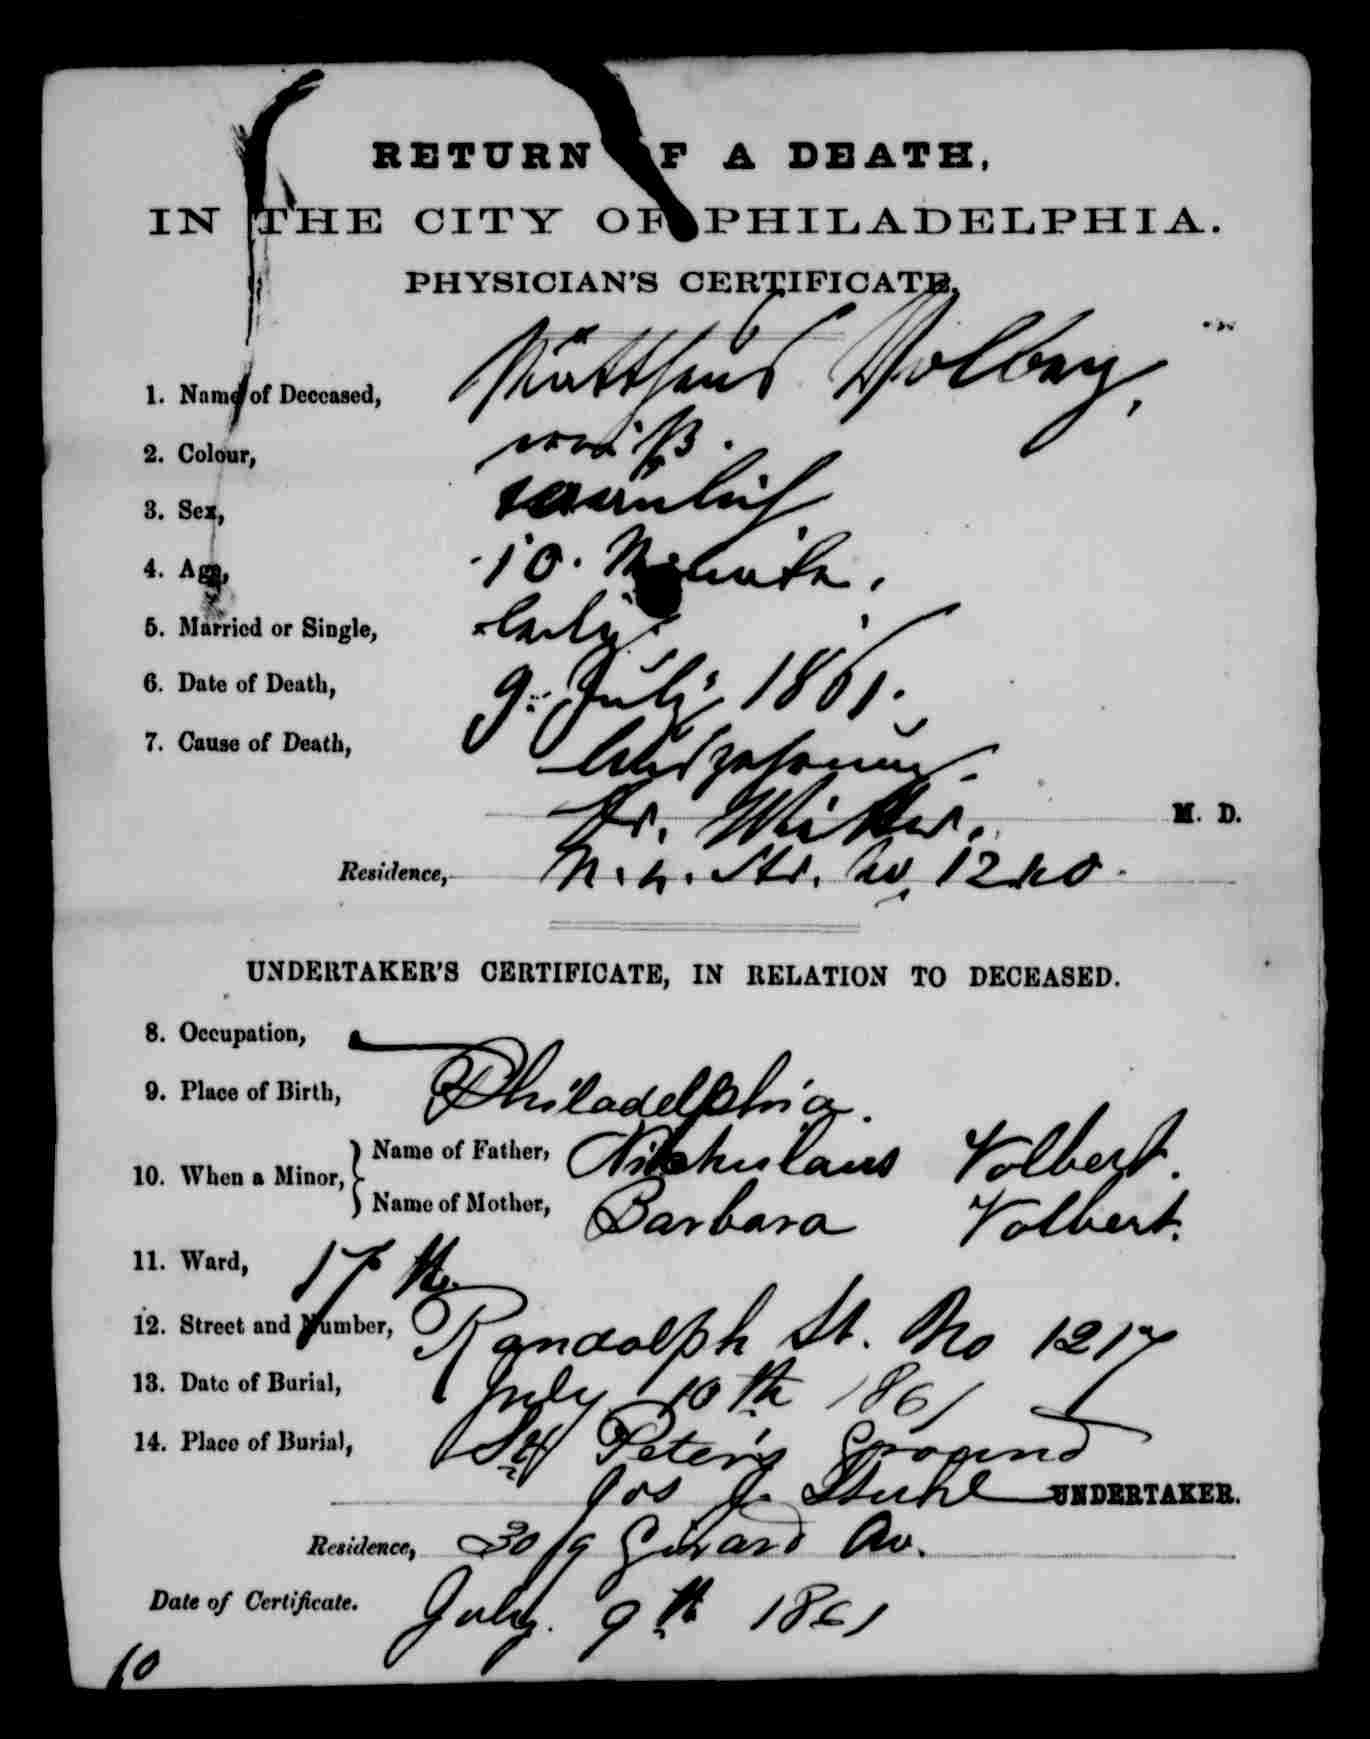 RETURN OF A DEATH,
IN THE CITY OF PHILADELPHIA.
PHYSICIAN'S CERTIFICATE.
1. Name of Deceased, Matthäus
2. Colour, weiß.
3. Sex, männlich
4. Age, 10. Monate.
5. Married or Single, ledig.
6. Date of Death, 9. July 1861.
7. Cause of Death, Auszehrung.
Dr. M. D.
Residence, N. 4. Str. No
UNDERTAKER'S CERTIFICATE, IN RELATION TO DECEASED.
8. Occupation,
9. Place of Birth, Philadelphia.
10. When a Minor, Name of Father, Volbert.
Name of Mother, Barbara Volbert.
11. Ward, 17 th.
12. Street and Number, Randolph St. No 1217
13. Date of Burial, July 10th 1861
14. Place of Burial, St Peter's Ground
Jos J. UNDERTAKER.
Residence, Girard Av.
Date of Certificate. July. 9th 1861
10